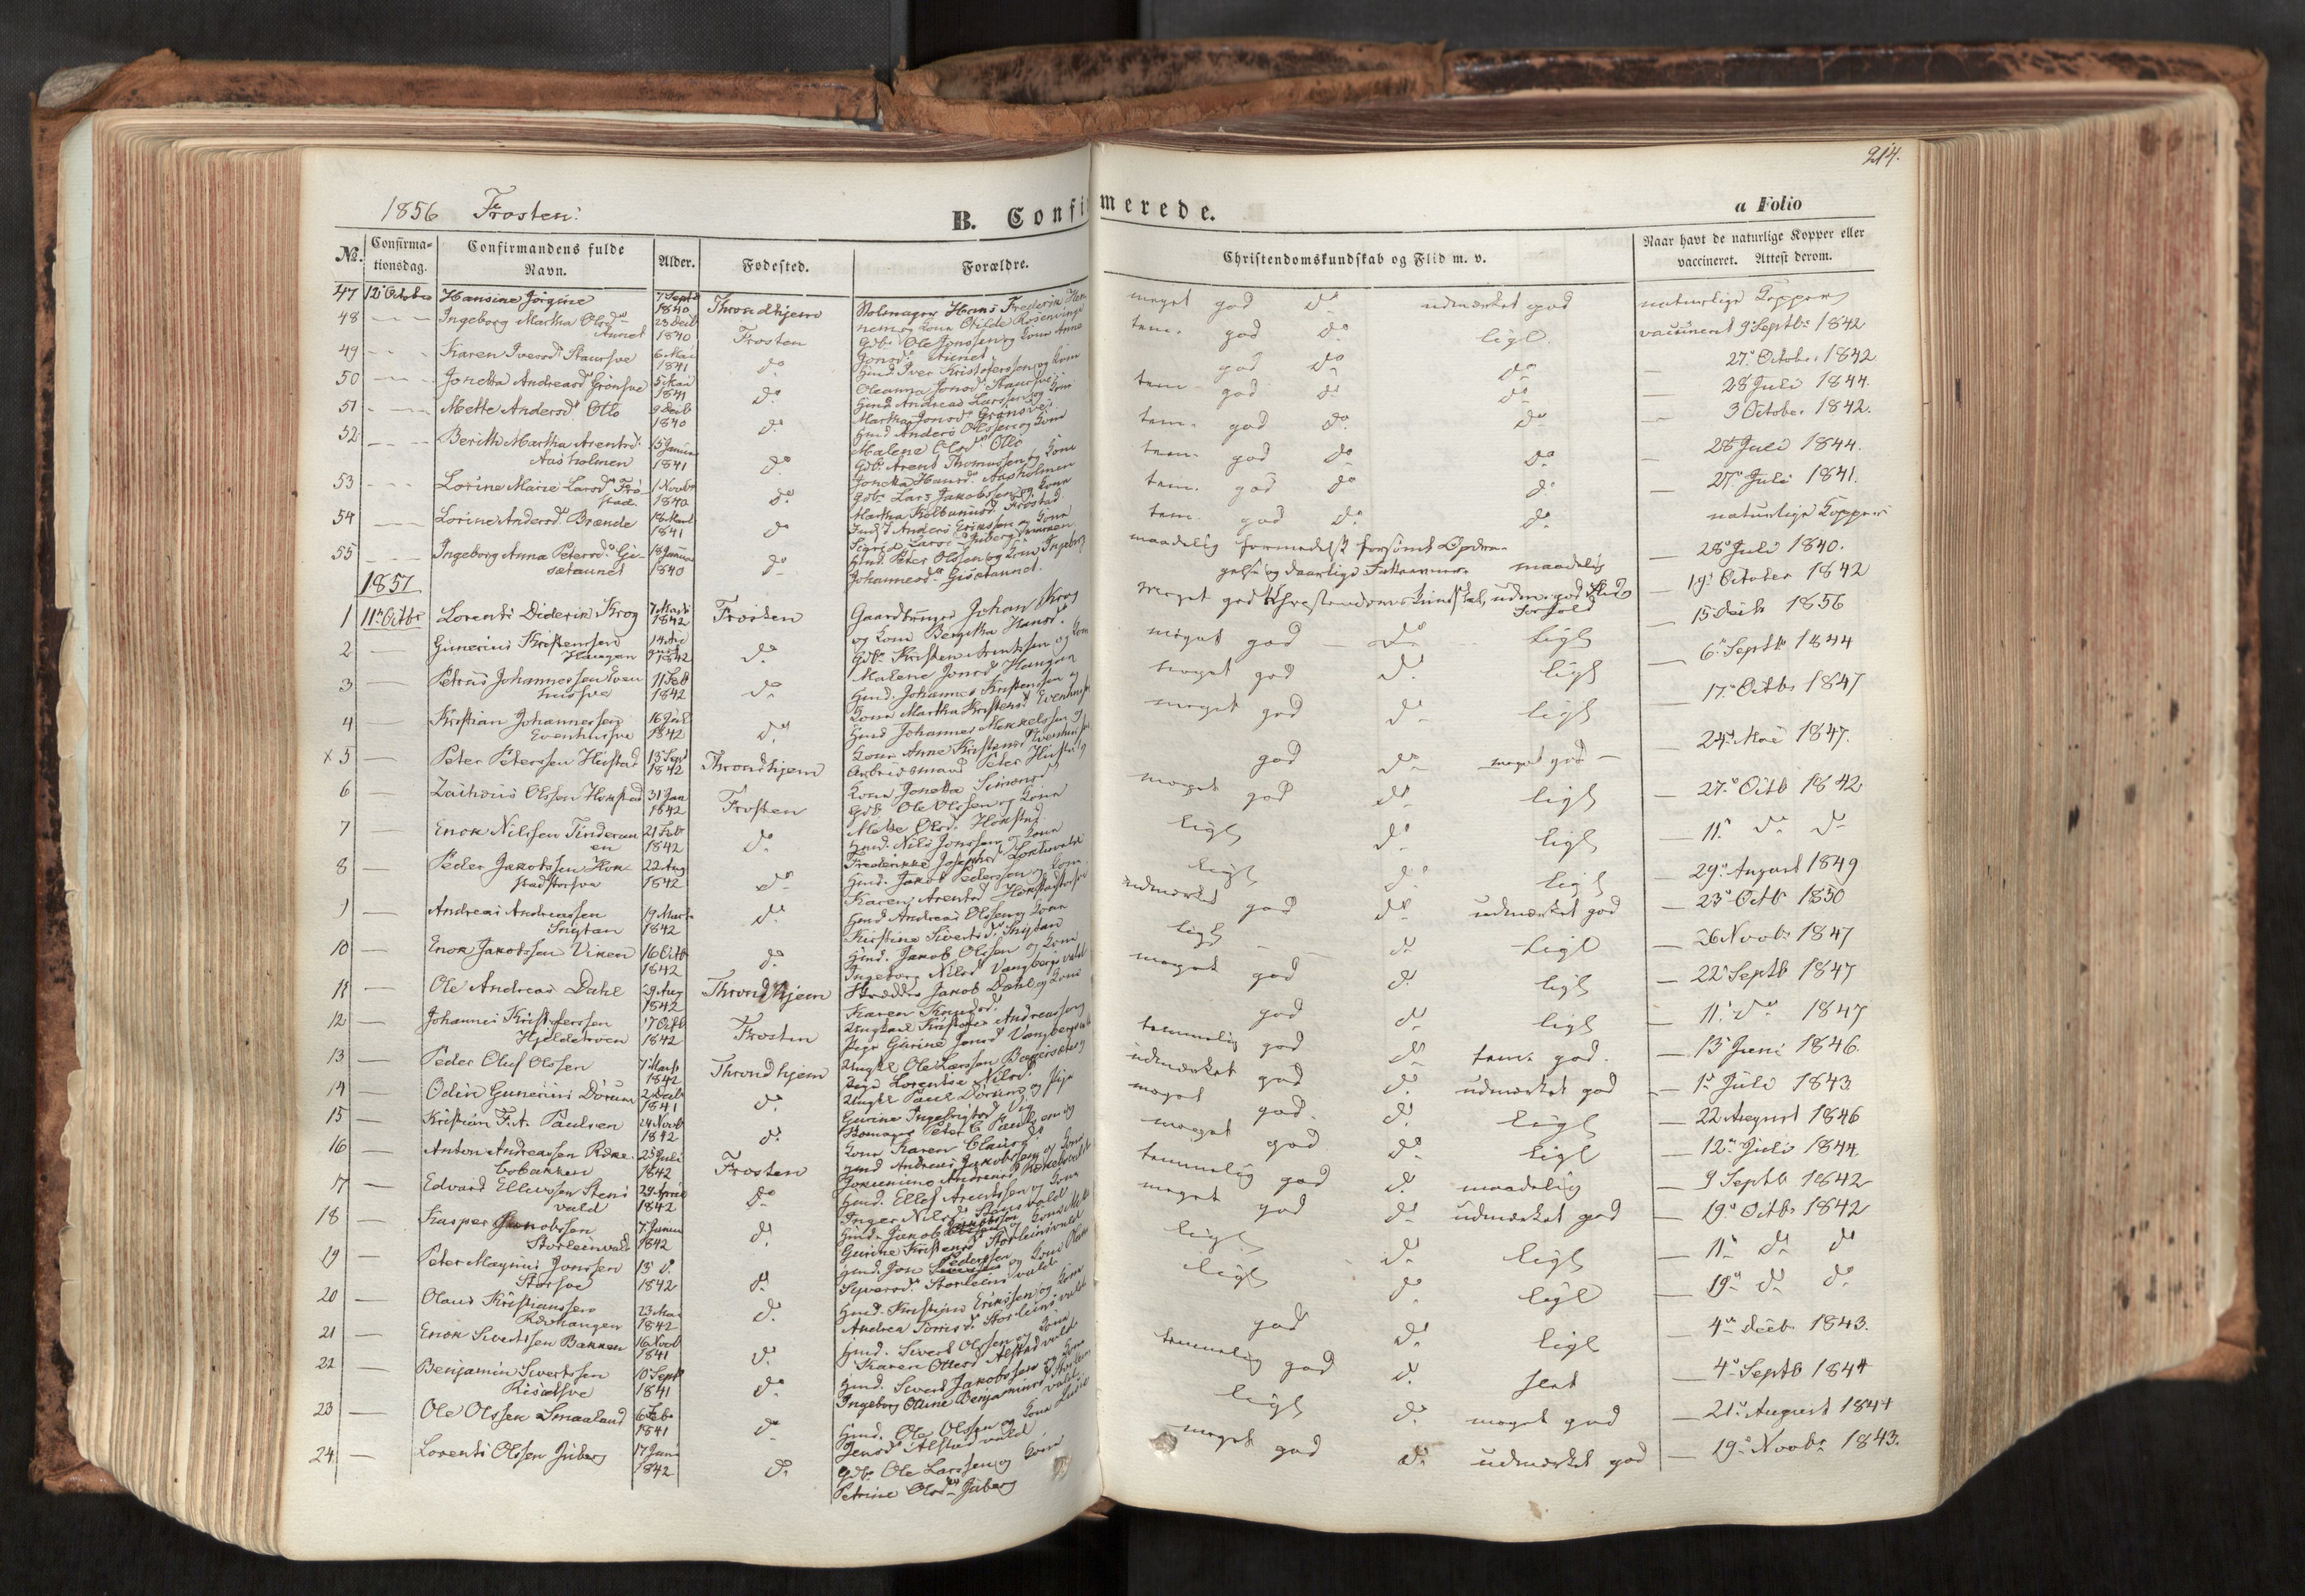 214.
1856 Frosten:
B. Confirmerede.
a Folio
No.
Confirma-
tionsdag.
Confirmandens fulde
Navn.
Alder.
Fødested.
Forældre.
Christendomskundskab og Flid m. v.
Naar havt de naturlige Kopper eller
vaccineret. Attest derom.
47 12 October Hansine Jörgine 7 Septb 1840 Throndhjem Hans Frederik meget god do udmærket god naturlige Kopper
48 Ingeborg Martha Olsdr Aunet 23 Decb 1840 Frosten Gdb. Ole Jonssen og Kone Anne Jonsdr Aunet tem. god do ligl vaccineret 9 Septbr 1842
49 Karen Iversdr Staursve 6 Mai 1841 do Hmd Iver Kristofersen og Kone Oleanna Jonsd Staursve god do do 27 Octobr. 1842
50 Jonetta Andreasd Grönsve 5 Mai 1841 do Hmd Andreas Larssen og Kone Martha Jonsd Grönsve tem. god do do 28 Juli 1844.
51 Mette Andersdr Otlo 9 Decb 1840 do Hmd Anders Olssen og Kone Malene Olsdr Otlo tem. god do do 3 October 1842.
52 Berith Martha Arentsd Aasholmen 15 Januar 1841 do Gdb. Arent Thomassen og Kone Jonetta Hansd. Aasholmen tem. god do do 28 Juli 1844.
53 Lorine Marie Larsdr Frostad 1 Novbr 1840 do Gdb. Lars Jakobssen og Kone Martha Frostad tem. god do do 27 Juli 1841.
54 Lorine Andersd. Brænde 18 Mart 1841 do Anders Erikssen og Kone tem. god do do naturlige Kopper
55 Ingeborg Anna Petersdr Gisetaunet 18 Januar 1840 do Hmd. Peter Olssen og Kone Ingeborg Johannesdr Gisetaunet. maadelig formedelst forsömt Opdragelse og daarlige maadelig 28 Juli 1840.
1857
1 11 Octbr Lorents Diderik Krog 7 Marts 1842 Frosten Gaardbruger Johan Krog og Kone Beritha Hansd. meget god Christendomskundskab, udm. god Flid 19 October 1842
2 Gunerius Kristensen Haugan 14 August 1842 do Gdb. Kristen Arentssen og Kone Malene Jonsd Haugan meget god do ligl 15 Decb 1856
3 Petrus Johannessen Evenhussve 11 Feb 1842 do Hmd. Johannes Kristenssen og Kone Martha Kristensd Evenhus meget god do ligl 6 Septbr 1844
4 Kristian Johannessen Evenhussve 16 Juli 1842 do Hmd Johannes Mekkelssen og Kone Anne Kristensd Evenhus meget god do ligl 17 Octb. 1847
x 5 Peter Peterssen Hustad 13 Sept 1842 Throndhjem Arbeidsmand Peter Hustad og Kone Jonetta Simonsd god do meget god 24 Mai 1847.
6 Zacharis Olssen Hokstad 31 Jan 1842 Frosten Gdb. Ole Olssen og Kone Mette Olsd. Hokstad meget god do ligl 27 Octb 1842
7 Enok Nilssen Tinderaunen 21 Feb 1842 do Hmd. Nils Jonssen og Kone Frederikke ligl do ligl 11 do do
8 Peder Jakobssen Hokstadstorsve 22 Aug 1842 do Hmd. Jakob Pederssen og Kone Karen Arentsd Hokstadstorsve ligl do ligl 29 August 1849
9 Andreas Andreassen Sngtan 19 Marts 1842 do Hmd Andreas Olssen og Kone Kirstine Sivertsd udmærket god do udmærket god 23 Octb 1850
10 Enok Jakobssen Viken 16 Octb 1842 do Hmd. Jakob Olssen og Kone Ingeborg Nilsd Vangbergs vald ligl do ligl 26 Novb. 1847
11 Ole Andreas Dahl 29 Aug 1842 Throndhjem Skrædder Jakob Dahl og Kone Karen Knudsd. meget god do ligl 22 Septb 1847
12 Johannes Kristoferssen Hjeldetroen 17 Octb 1842 Frosten Ungkarl Kristofer Andreassen og Pige Gurine Jonsd god do ligl 11 do 1847
13 Peder Oluf Olssen 7 Marts 1842 Throndhjem Ungkl Ole Larssen og Pige Lorentse Nilsd. temmelig god do tem. god. 13 Juni 1846.
14 Odin Gunerius Dörum 2 Decb 1841 do Ungkl Paul Dörum og Pige Gurine udmærket god do udmærket god 1 Juli 1843
15 Kristian F. A. Paulsen 24 Novb 1842 do Peter C. Paulsen og Kone Karen meget god do ligl 22 August 1846
16 Anton Andreassen Rækebobakken 25 Juli 1842 Frosten Hmd Andreas Jakobssen og Kone meget god do ligl 12 Juli 1844.
17 Edvard Ellevssen Stensvald 29 April 1842 do Hmd. Ellef Arentssen og Kone Inger Nilsd Stensvald temmelig god do maadelig 9 Septb 1842
18 Kasper Jakobssen Storleinvald 7 Januar 1842 do Hmd. Jakob og Kone Gurine Kristensd Storleinsvald meget god do udmærket god 19 Octb. 1842
19 Peter Magnus Jonssen Storsve 13 do 1842 do Hmd. Jon Pederssen og Kone Syversd. Storleins vald ligl do ligl 11 do do
20 Olaus Kristianssen Rævhaugen 23 Mai 1842 do Hmd. Kristian Erikssen og Kone Andrea Storleins vald ligl do ligl 19 do do
21 Enok Sivertssen Bakken 16 Novb 1841 do Hmd. Sivert Olssen og Kone Karen Ottersd Alstad vald god do ligl 4 Decb. 1843.
22 Benjamin Sivertssen Risætsve 10 Sept 1841 do Hmd. Sivert Jakobssen og Kone Ingeborg Oline Benjaminsd temmelig god do slet 4 Septb 1844
23 Ole Olssen Smaaland 6 Feb. 1841 do Hmd. Ole Olssen og Kone Jensd Alstad vald ligl do meget god 21 August 1844
24 Lorents Olssen Juberg 17 Juni 1842 do Gdb. Ole Larssen og Kone Petrine Olsdr Juberg meget god do udmærket god 19 Novbr 1843.